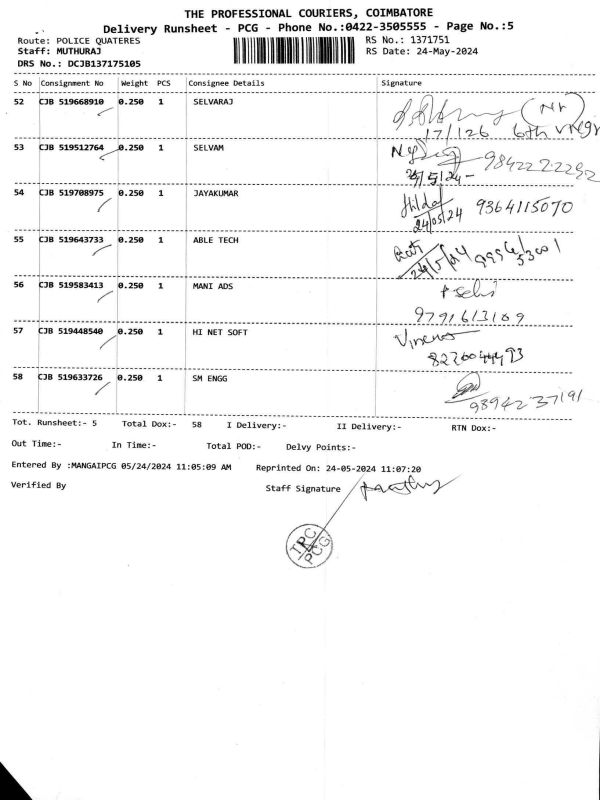 THE PROFESSIONAL COURIERS, COIMBATORE
Delivery Runsheet - PCG - Phone No.:0422-3505555 - Page No.:5
Route: POLICE QUATERES
RS No.: 1371751
Staff: MUTHURAJ
RS Date: 24-May-2024
DRS No.: DCJB137175105
S No Consignment No Weight PCS Consignee Details Signature
52 CJB 519668910 0.250 1 SELVARAJ
17/126 6th
53 CJB 519512764 0.250 1 SELVAM
9842222292
24/5/24
54 CJB 519708975 0.250 1 JAYAKUMAR
24/05/24 9364115070
55 CJB 519643733 0.250 1 ABLE TECH
24/5/24
56 CJB 519583413 0.250 1 MANI ADS
9791613109
57 CJB 519448540 0.250 1 HI NET SOFT
58 CJB 519633726 0.250 1 SM ENGG
9894237191
Tot. Runsheet:- 5 Total Dox:- 58 I Delivery:- II Delivery:- RTN Dox:-
Out Time:- In Time:- Total POD:- Delvy Points:-
Entered By :MANGAIPCG 05/24/2024 11:05:09 AM Reprinted On: 24-05-2024 11:07:20
Verified By Staff Signature
TPC
PCG